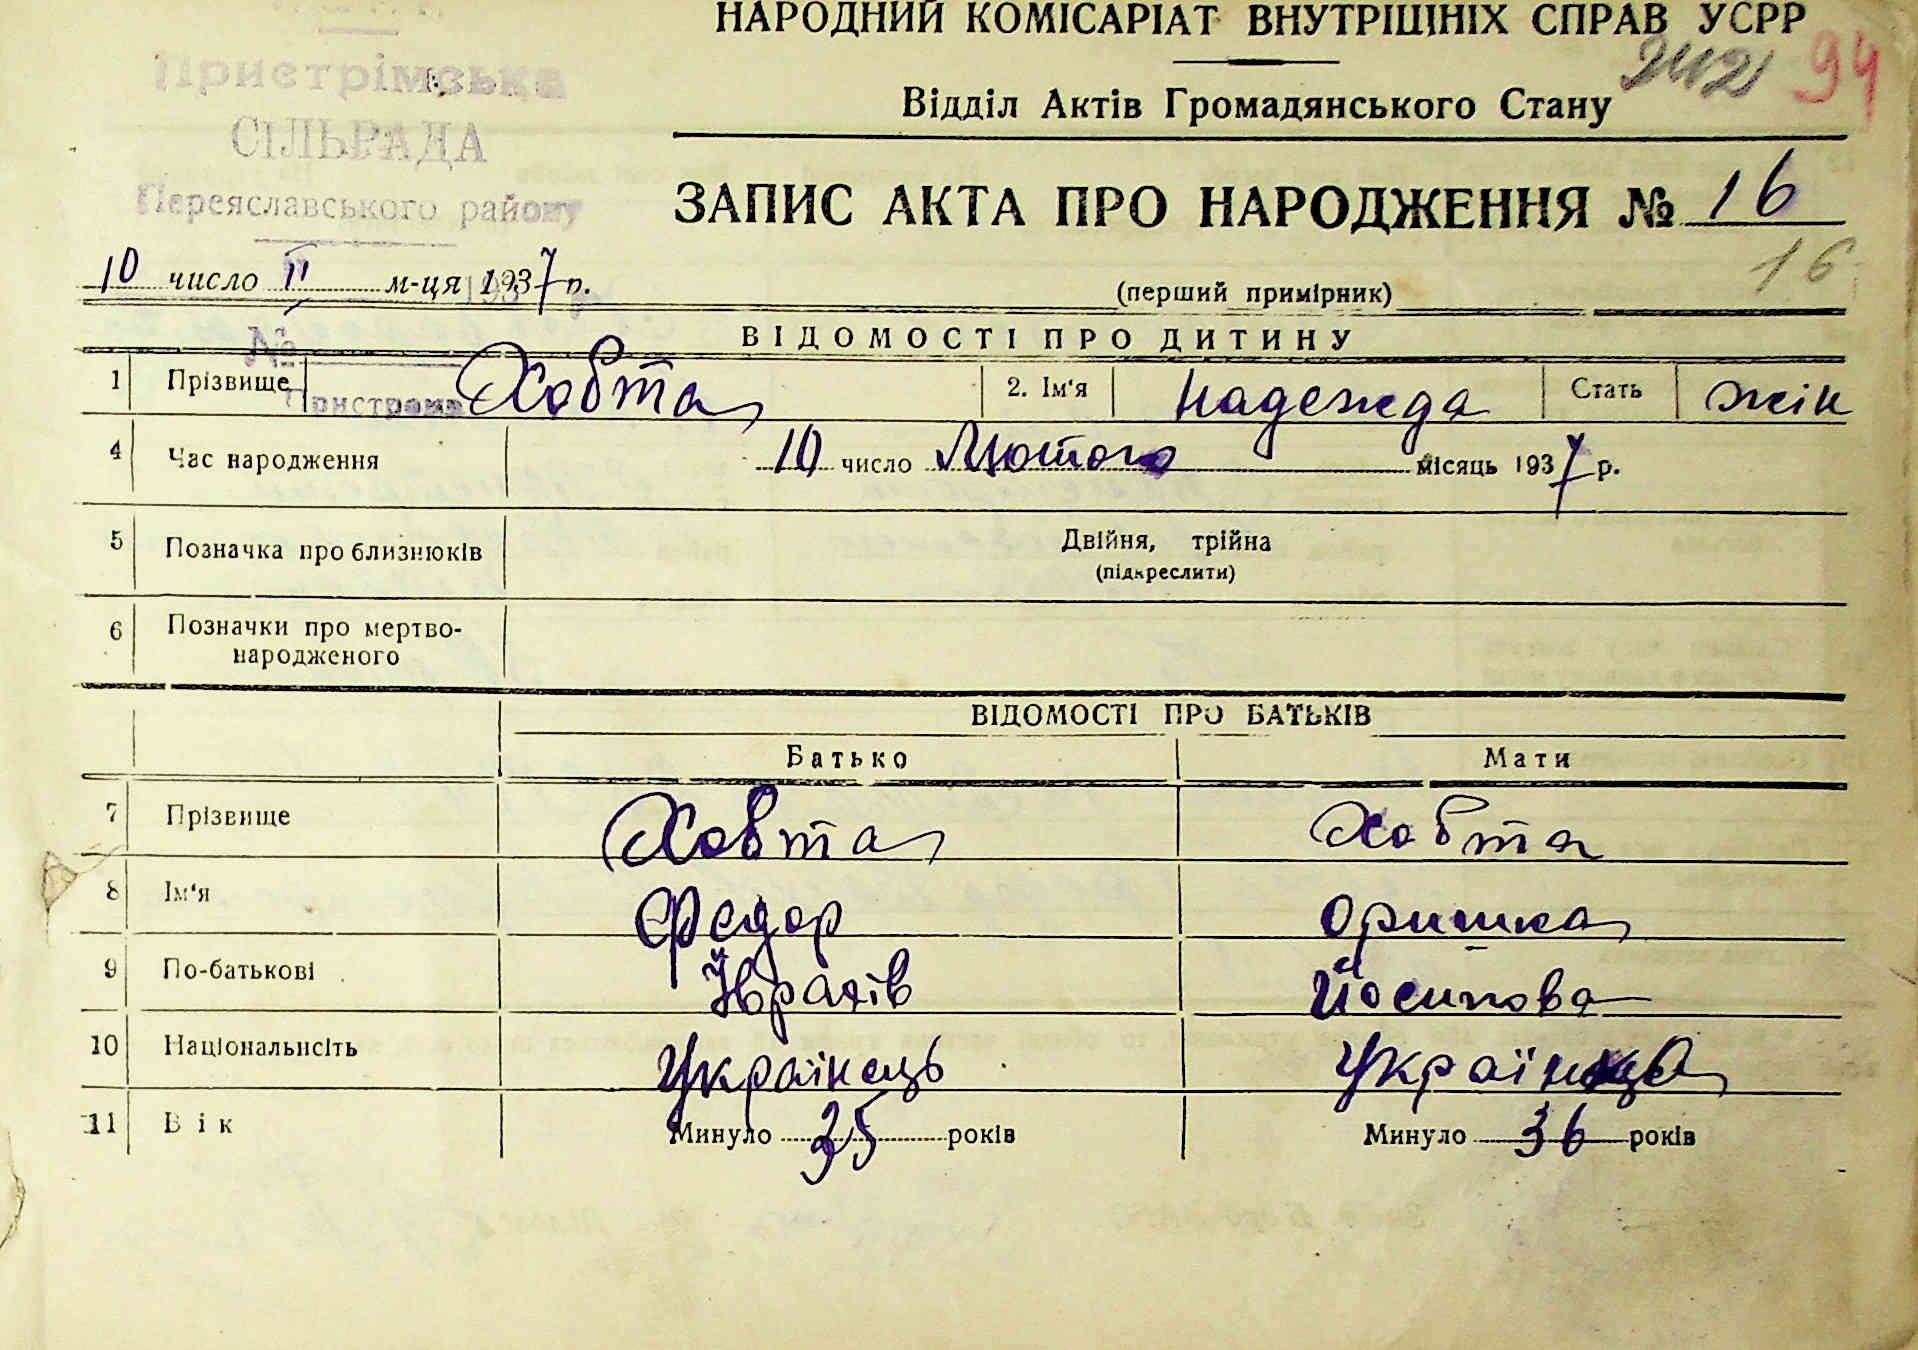 НАРОДНИЙ КОМІСАРІАТ ВНУТРІШНІХ СПРАВ УСРР
242 94
Відділ Актів Громадянського Стану
Пристрімська
СІЛЬРАДА
Переяславського району
ЗАПИС АКТА ПРО НАРОДЖЕННЯ № 16
16
10 число II м-ця 1937 р.
(перший примірник)
№
Пристроми
ВІДОМОСТІ ПРО ДИТИНУ
1 Прізвище Ховта 2. Ім'я Надежда Стать жін
4 Час народження 10 число Лютого місяць 1937 р.
5 Позначка про близнюків Двійня, трійна
(підкреслити)
6 Позначки про мертво-
народженого
ВІДОМОСТІ ПРО БАТЬКІВ
Батько Мати
7 Прізвище Ховта Ховта
8 Ім'я Федор Оришка
9 По-батькові Йосипова
10 Національнсіть Українець Українка
11 Вік Минуло 35 років Минуло 36 років